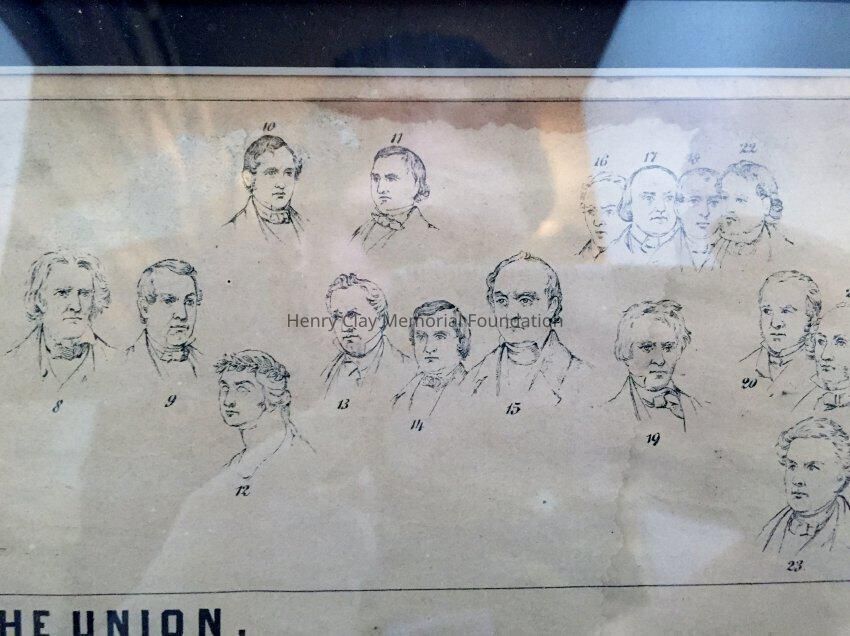 10
11
16
17
18
22
Henry Clay Memorial Foundation
8
9
13
14
15
19
20
12
23
HE UNION.